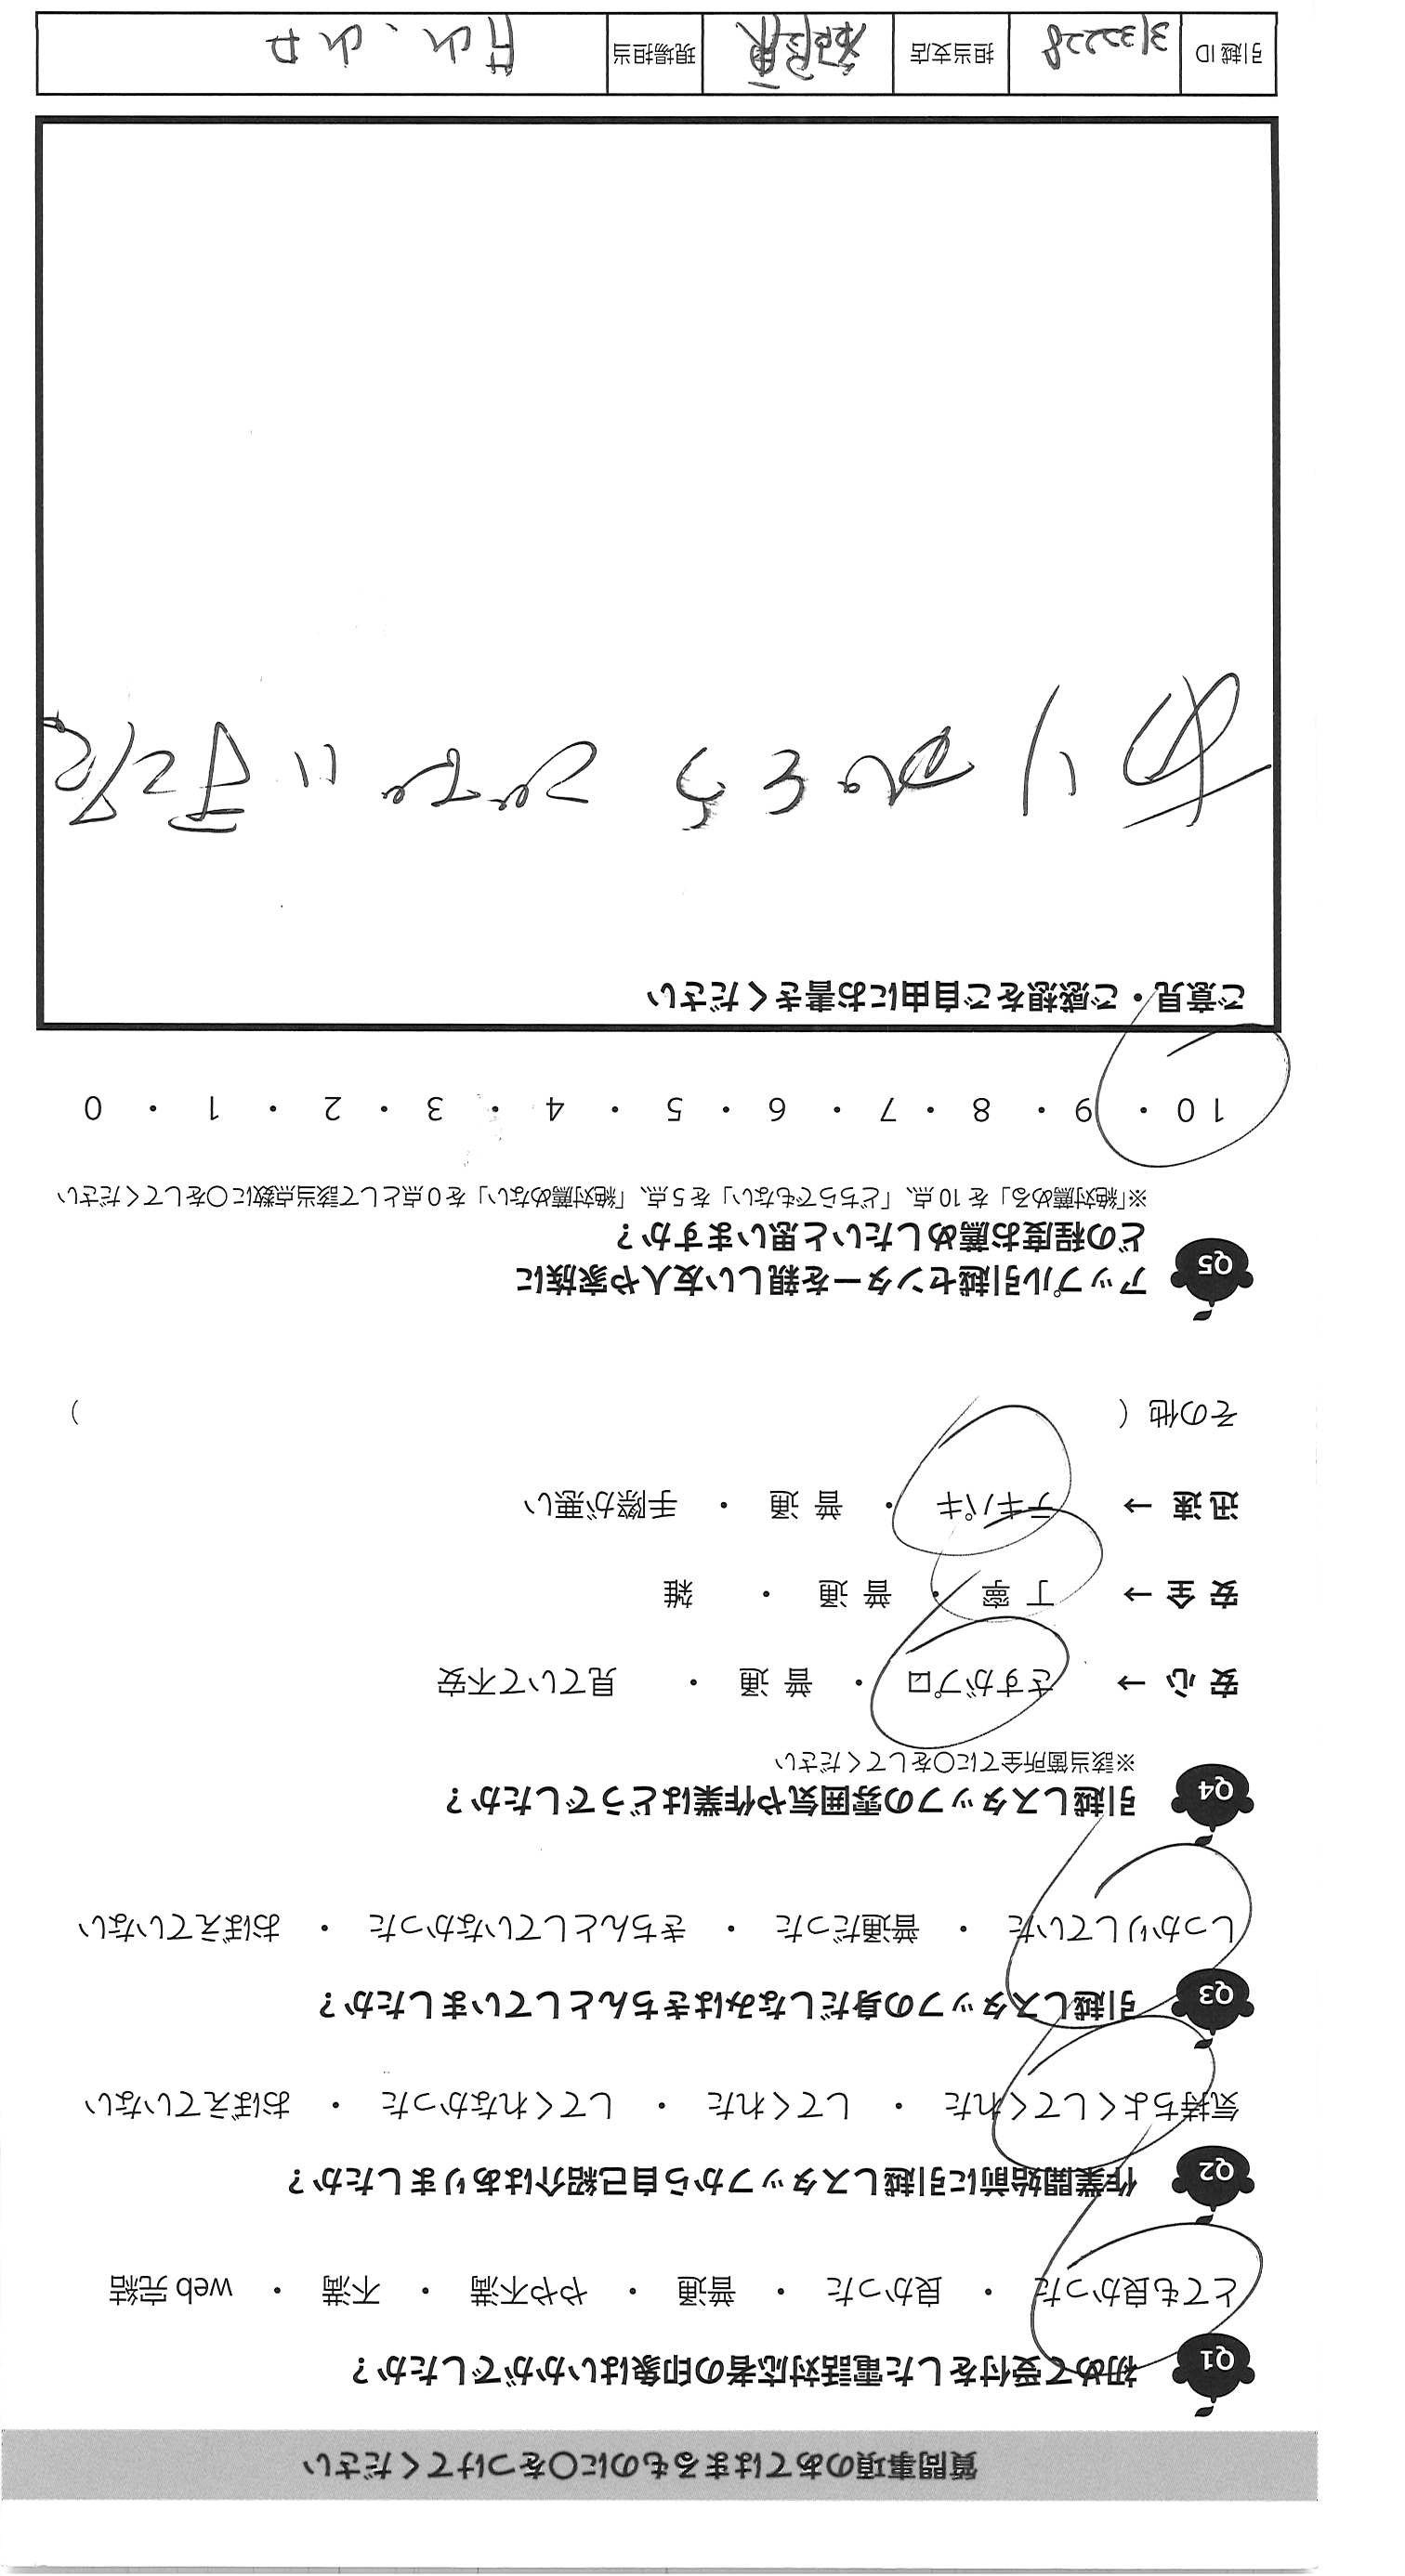 質問事項のあてはまるものに〇をつけてください
Q1 初めて受付をした電話対応者の印象はいかがでしたか？
とても良かった ・ 良かった ・ 普通 ・ やや不満 ・ 不満 ・ web 完結
Q2 作業開始前に引越しスタッフから自己紹介はありましたか？
気持ちよくしてくれた ・ してくれた ・ してくれなかった ・ おぼえていない
Q3 引越しスタッフの身だしなみはきちんとしていましたか？
しっかりしていた ・ 普通だった ・ きちんとしていなかった ・ おぼえていない
Q4 引越しスタッフの雰囲気や作業はどうでしたか？
※該当箇所全てに〇をしてください
安 心 → さすがプロ ・ 普 通 ・ 見ていて不安
安 全 → 丁 寧 ・ 普 通 ・ 雑
迅 速 → テキパキ ・ 普 通 ・ 手際が悪い
その他（ ）
Q5 アップル引越センターを親しい友人や家族に
どの程度お薦めしたいと思いますか？
※「絶対薦める」を 10 点、「どちらでもない」を 5 点、「絶対薦めない」を 0 点として該当点数に〇をしてください
10 ・ 9 ・ 8 ・ 7 ・ 6 ・ 5 ・ 4 ・ 3 ・ 2 ・ 1 ・ 0
ご意見・ご感想をご自由にお書きください
ありがとうございました
引越 ID 3132228 担当支店 現場担当